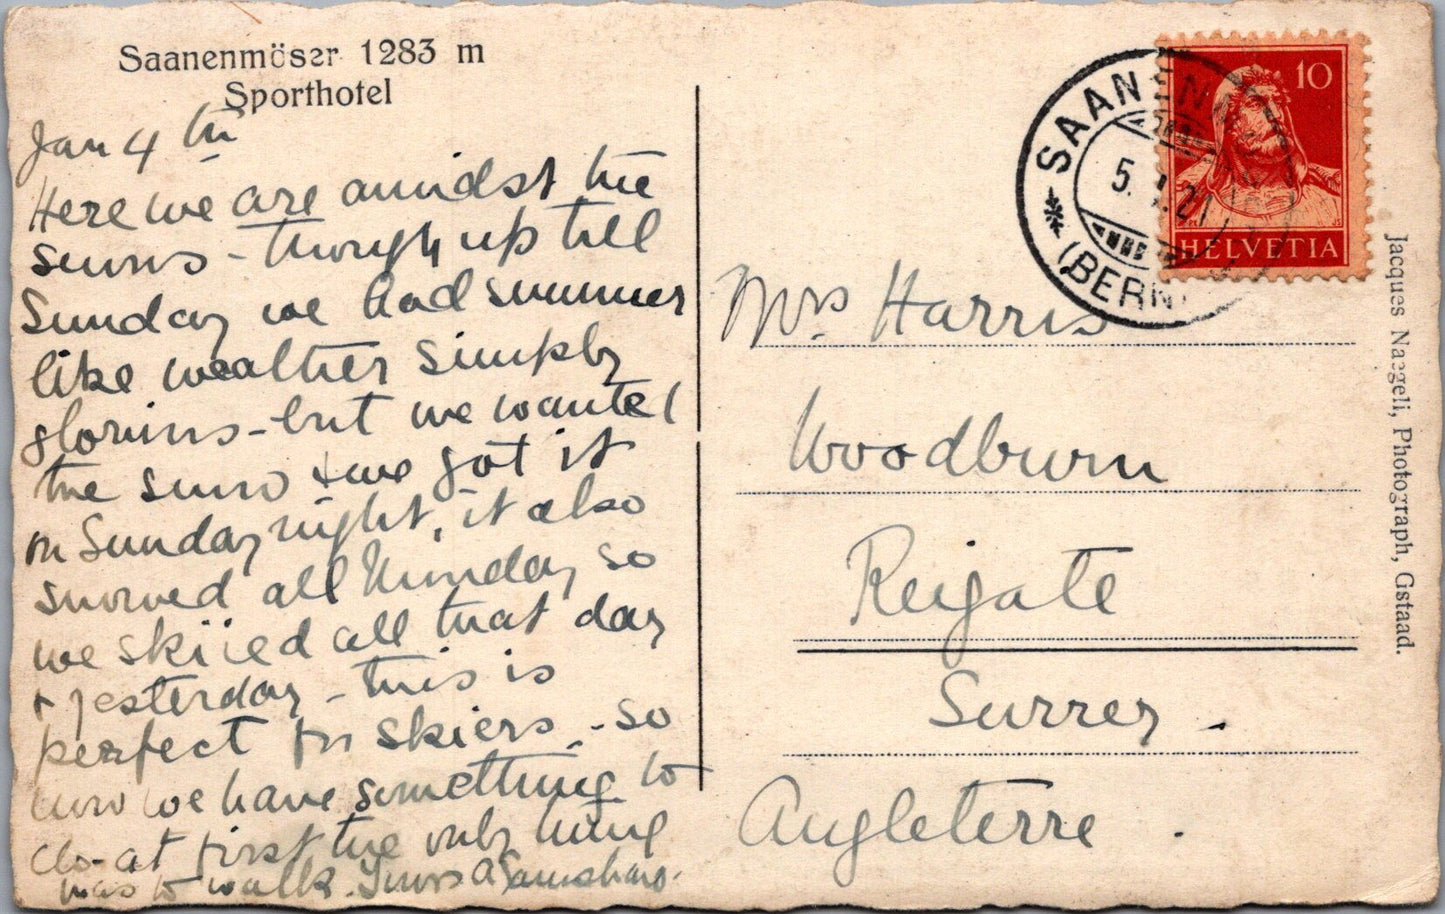 Saanenmöser 1283 m
Sporthotel
Jan 4th
Here we are amidst the
snows - though up till
Sunday we had summer
like weather simply
glorious - but we wanted
the snow & we got it
on Sunday night, it also
snowed all Monday so
we skiied all that day
& yesterday - this is
perfect for skiers - so
now we have something to
do - at first the only thing
was to walk. Yours A
HELVETIA
10
SAANENMÖSER
5. I. 21
(BERN)
Mrs. Harris
Woodburn
Reigate
Surrey.
Angleterre.
Jacques Naegeli, Photograph, Gstaad.